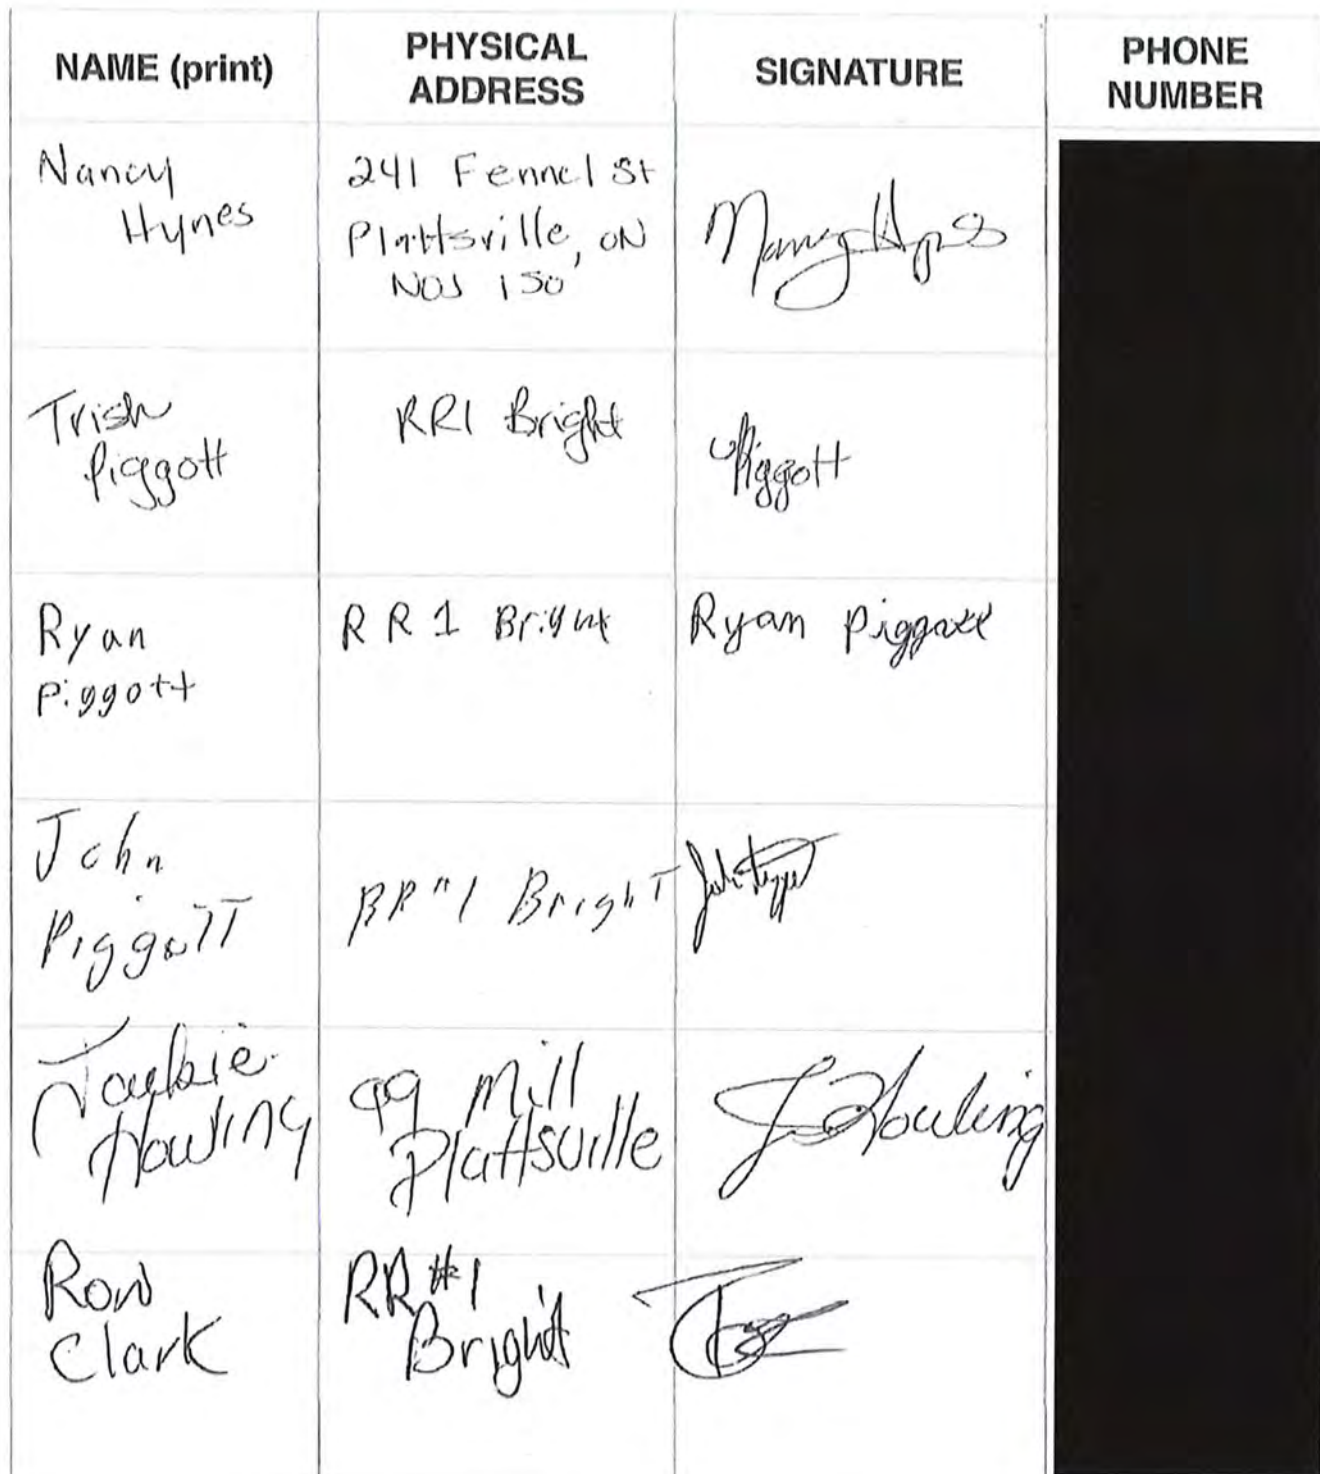 NAME (print)
PHYSICAL
ADDRESS
SIGNATURE
PHONE
NUMBER
Nancy
Hynes
241 Fennel St
Plattsville, ON
N0J 1S0
Nancy Hynes
Trish
Piggott
RR1 Bright
Piggott
Ryan
Piggott
R R 1 Bright
Ryan Piggott
John
Piggott
RR "1 Bright
John Piggott
Jackie
Howling
99 Mill
Plattsville
J Howling
Ron
Clark
RR #1
Bright